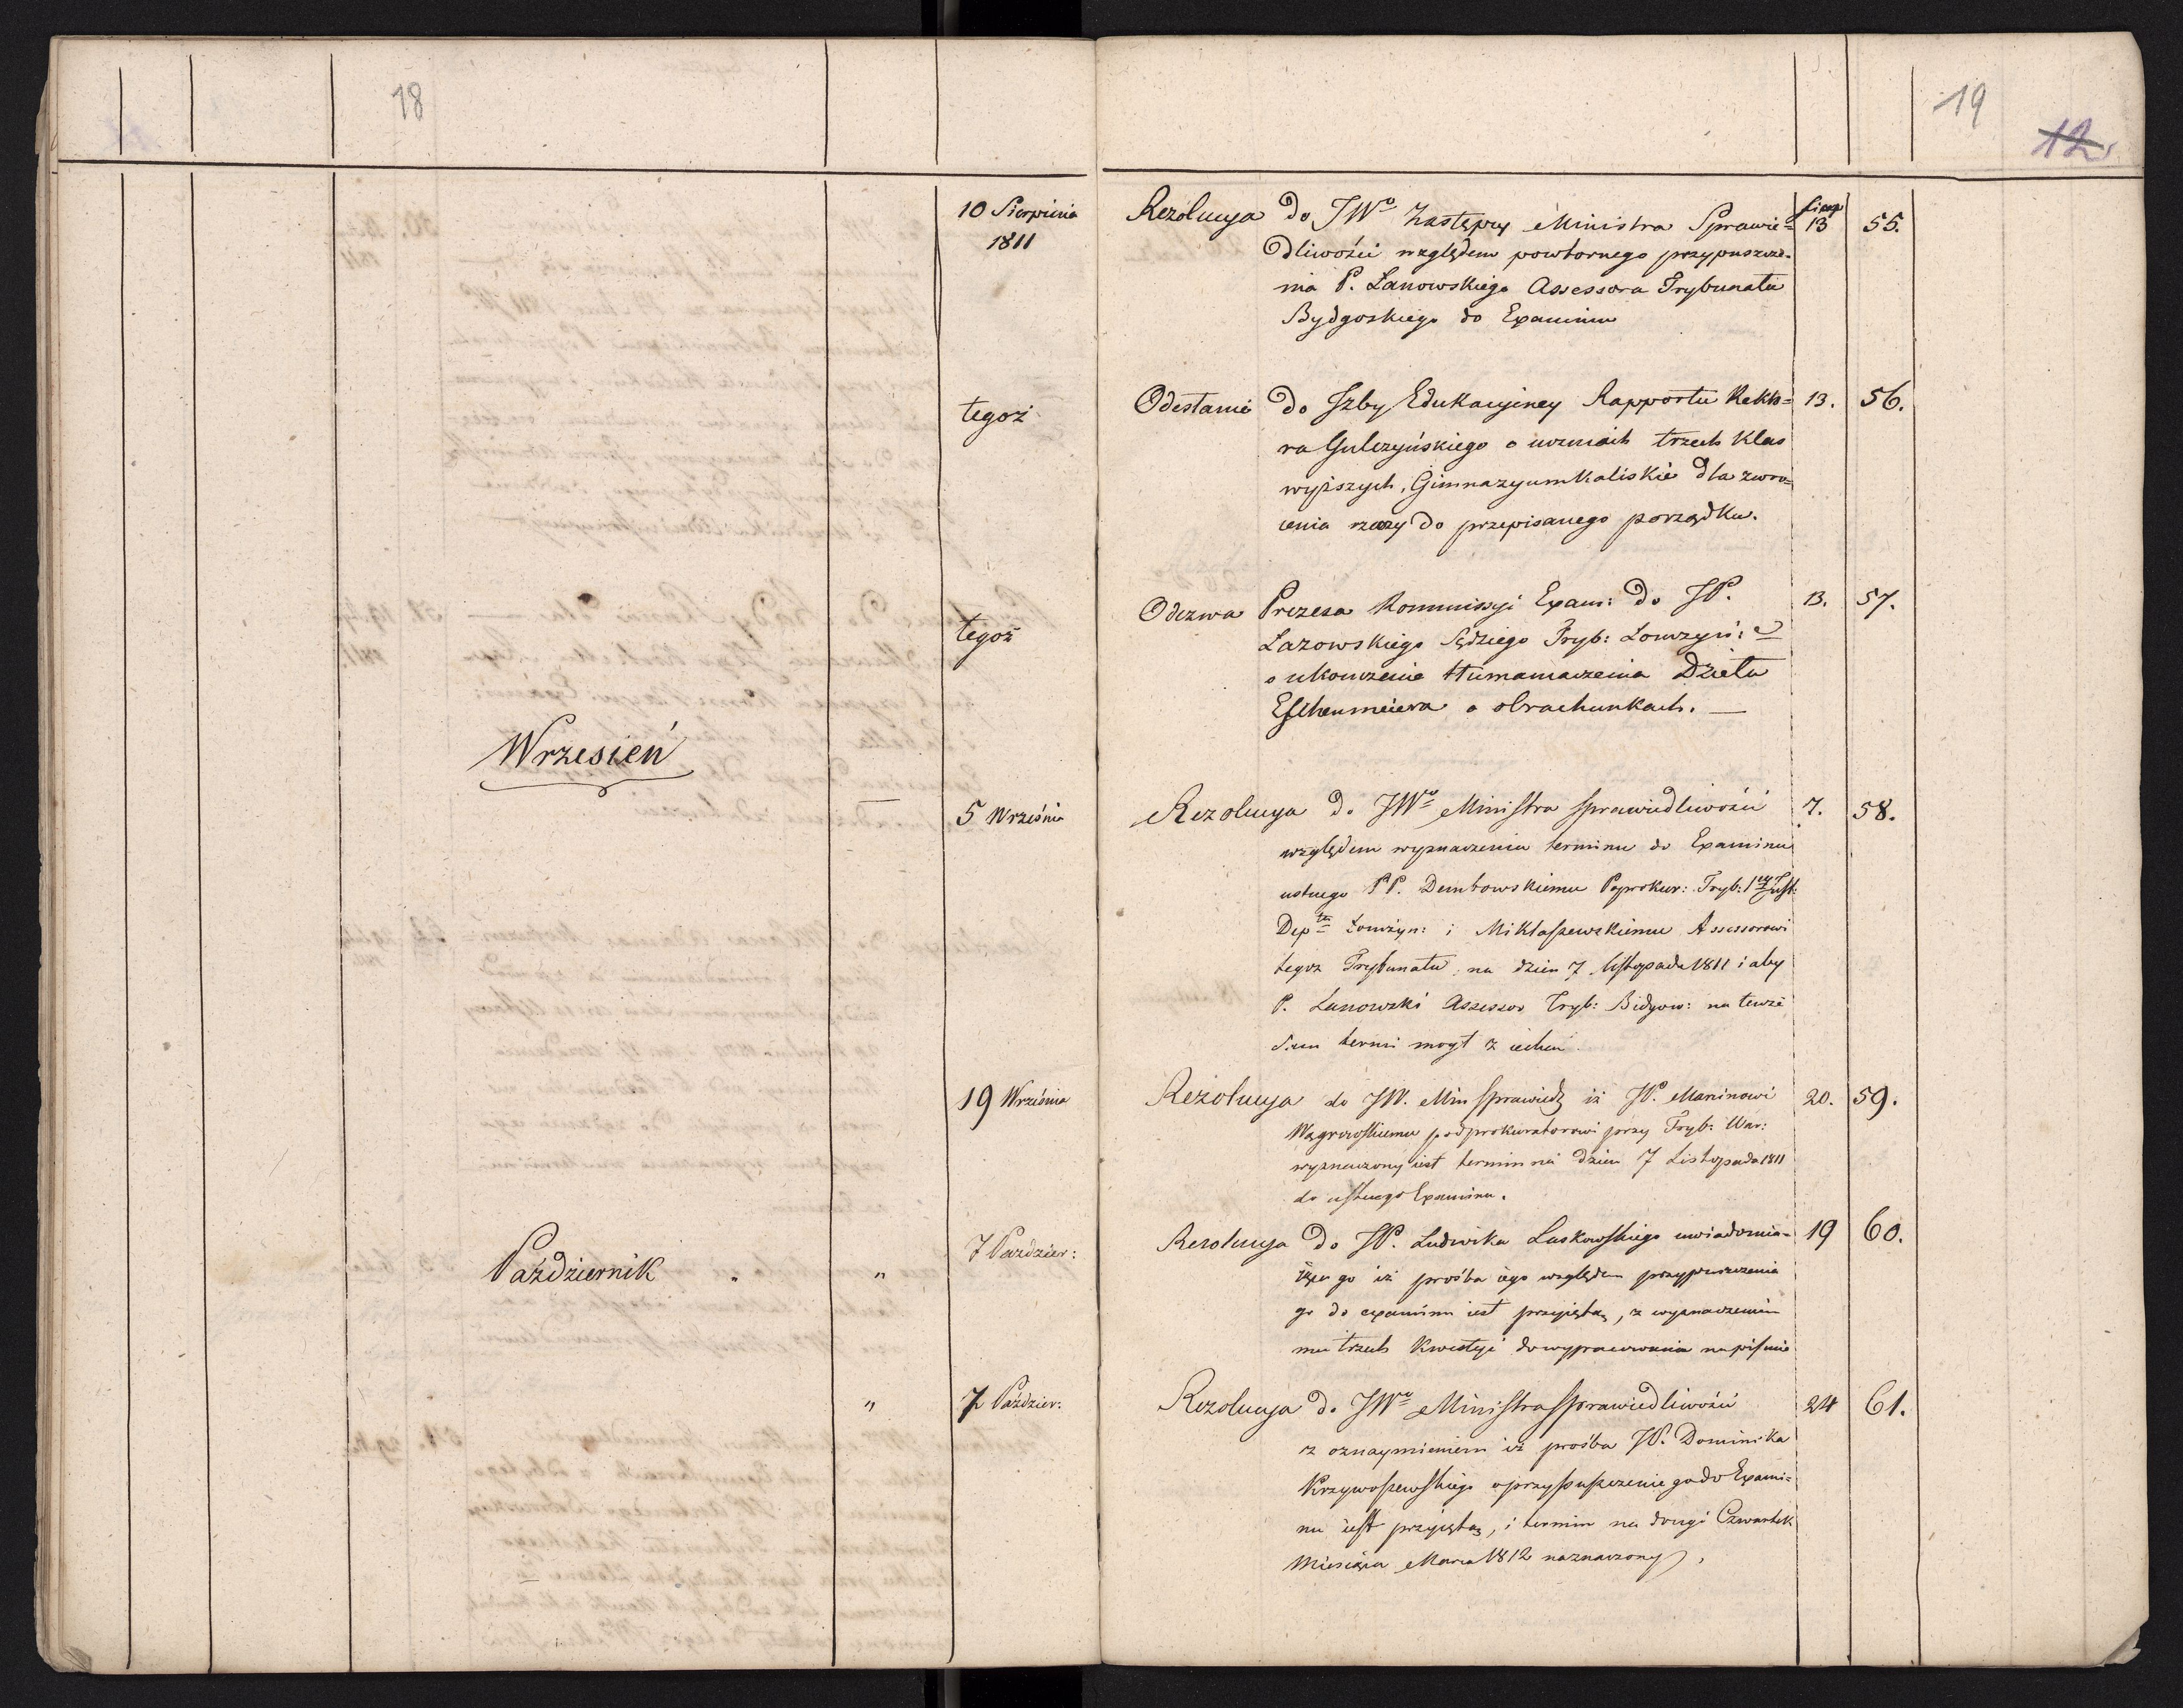 18
10 Sierpnia
1811
tegoż
tegoż
Wrzesień
5 Września
19 Września
Październik " "
7 Pazdzier:
" 7 Październ:
19
12
Rezolucya do JWo Zastępcy Ministra Sprawie= Sierp 13 55.
dliwości względem powtornego przypuszcze-
nia P. Lanowskiego Assessora Trybunału
Bydgoskiego do Examinu
Odesłanie do Izby Edukacyiney Rapportu Rekto= 13. 56.
ra Gulczyńskiego o uczniach trzech Klas
wyższych, Gimnazyum Kaliskie dla zwro=
cenia rzeczy do przepisanego porządku.
Odezwa Prezesa Kommissyi Exam: do JP. 13. 57.
Łazowskiego Sędziego Tryb: Łomżyń:
o ukończenie tłumamaczenia Dzieła
Eschenmeiera o obrachunkach. —
Rezolucya do JWo Ministra Sprawiedliwości 7. 58.
względem wyznaczenia terminu do Examinu
ustnego PP. Dembowskiemu Pprokur: Tryb: 1ey Inst:
Deptu Łomżyn: i Mikłaszewskiemu Assessorowi
tegoż Trybunału, na dzien 7 Listopada 1811 i aby
P. Lanowski Assessor Tryb: Bidgow: na tenże
sam termi mogł ziechać
Rezolucya do JW. Min Sprawiedz iż JP. Maninowi 20. 59.
Wągrowskiemu podprokuratorowi przy Tryb: War:
wyznaczony iest termin na dzien 7 Listopada 1811
do ustnego Examinu.
Rezolucya do JP. Ludwika Laskowskiego uwiadomia- 19 60.
iąca go iż prośba iego względem przypuszczenia
go do examinu iest przyiętą, z wyznaczeniem
mu trzech Kwestyi do wypracowania na piśmie
Rezolucya do JWo Ministra Sprawiedliwości 24 61.
z oznaymieniem iż prośba JP. Dominika
Krzywoszewskiego o przypuszczenie go do Exami=
nu iest przyiętą, i termin na drugi Czwartek
Miesiąca Marca 1812 naznaczony.